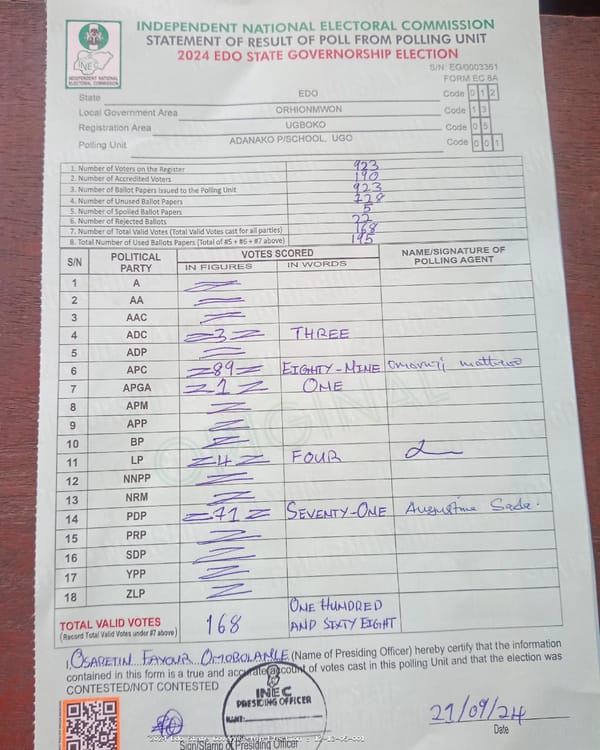 INDEPENDENT NATIONAL ELECTORAL COMMISSION
STATEMENT OF RESULT OF POLL FROM POLLING UNIT
2024 EDO STATE GOVERNORSHIP ELECTION
INEC
INDEPENDENT NATIONAL ELECTORAL COMMISSION
S/N: EG/0003361
FORM EC 8A
State EDO Code 0 1 2
Local Government Area ORHIONMWON Code 1 3
Registration Area UGBOKO Code 0 5
Polling Unit ADANAKO P/SCHOOL, UGO Code 0 0 1
1. Number of Voters on the Register 923
2. Number of Accredited Voters 190
3. Number of Ballot Papers Issued to the Polling Unit 923
4. Number of Unused Ballot Papers 728
5. Number of Spoiled Ballot Papers 5
6. Number of Rejected Ballots 22
7. Number of Total Valid Votes (Total Valid Votes cast for all parties) 168
8. Total Number of Used Ballots Papers (Total of #5 + #6 + #7 above) 195
S/N POLITICAL PARTY VOTES SCORED NAME/SIGNATURE OF POLLING AGENT
IN FIGURES IN WORDS
1 A
2 AA
3 AAC
4 ADC 3 THREE
5 ADP
6 APC 89 EIGHTY-NINE
7 APGA 1 ONE
8 APM
9 APP
10 BP
11 LP 4 FOUR
12 NNPP
13 NRM
14 PDP 71 SEVENTY-ONE Augustine Sade.
15 PRP
16 SDP
17 YPP
18 ZLP
ORIGINAL
TOTAL VALID VOTES 168 ONE HUNDRED AND SIXTY EIGHT
(Record Total Valid Votes under #7 above)
I, OSARETIN FAVOUR OMOBOLANLE (Name of Presiding Officer) hereby certify that the information
contained in this form is a true and accurate account of votes cast in this polling unit and that the election was
CONTESTED/NOT CONTESTED
INEC
PRESIDING OFFICER
21/09/24
Date
Sign/Stamp of Presiding Officer